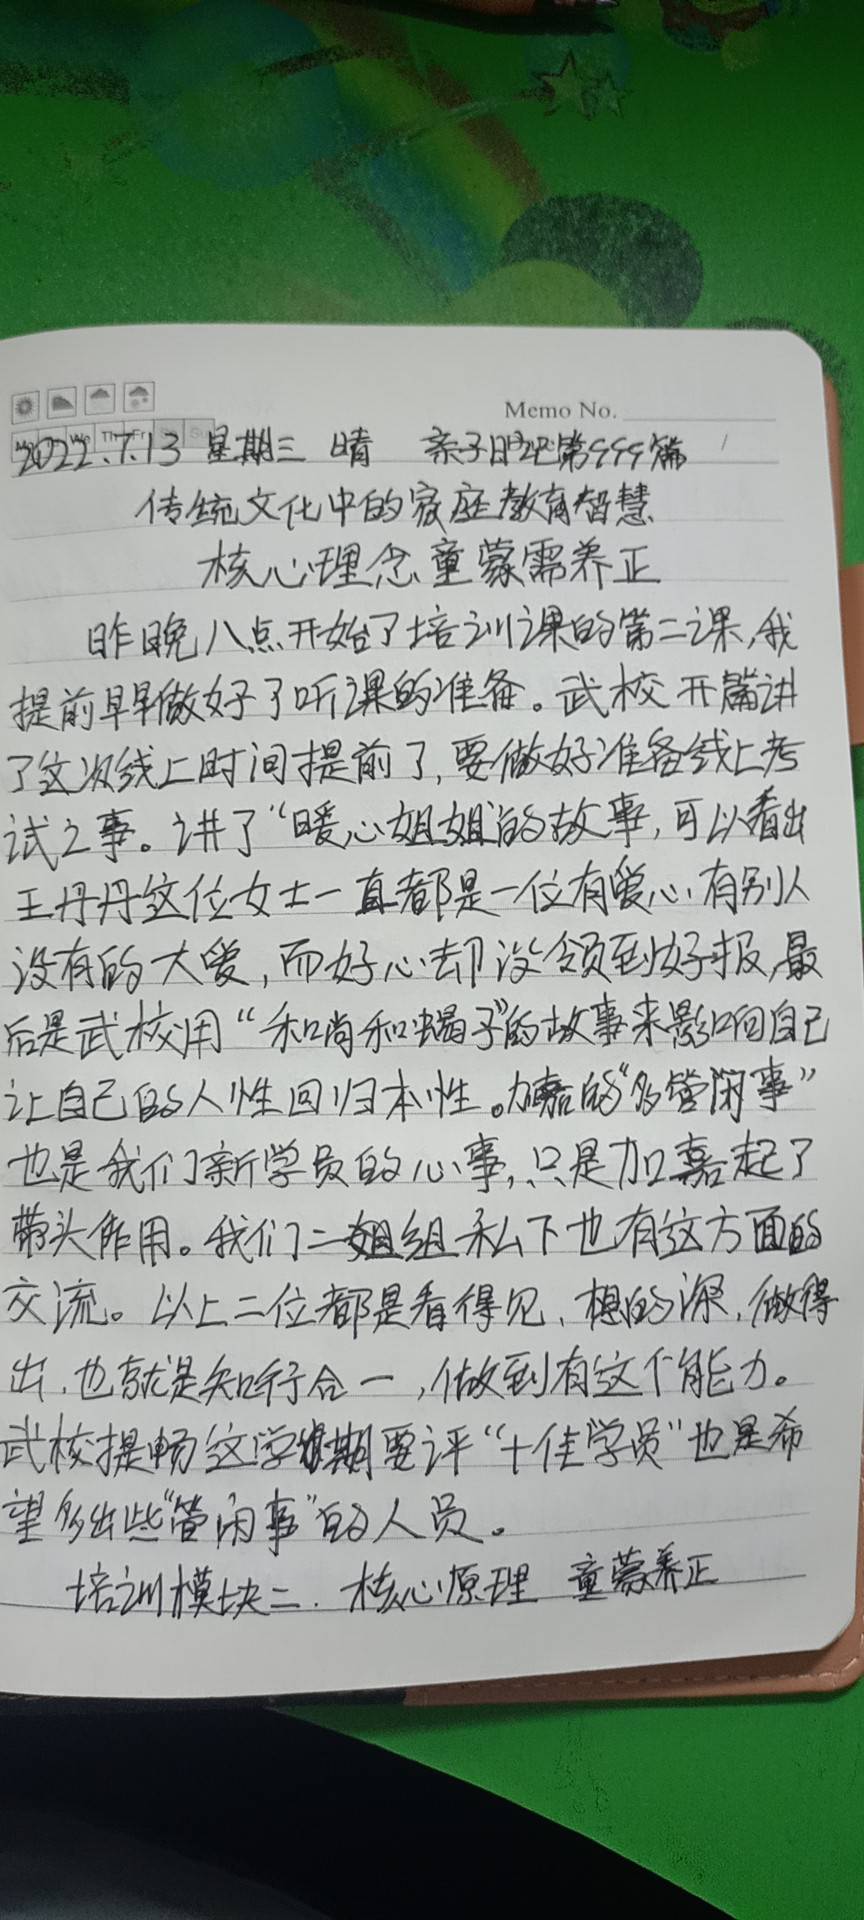 Memo No.
2022.7.13 星期三 晴 亲子日记第999篇
传统文化中的家庭教育智慧
核心理念童蒙需养正
昨晚八点开始了培训课的第二课,我
提前早早做好了听课的准备。武校开篇讲
了这次线上时间提前了,要做好准备线上考
试之事。讲了“暖心姐姐”的故事,可以看出
王丹丹这位女士一直都是一位有爱心,有别人
没有的大爱,而好心却没领到好报,最
后是武校用“和尚和蝎子”的故事来影响自己
让自己的人性回归本性。加嘉的“多管闲事”
也是我们新学员的心事,只是加嘉起了
带头作用。我们二姐组私下也有这方面的
交流。以上二位都是看得见、想的深,做得
出,也就是知行合一,做到有这个能力。
武校提畅这学期要评“十佳学员”也是希
望多出些“管闲事”的人员。
培训模块二.核心原理 童蒙养正